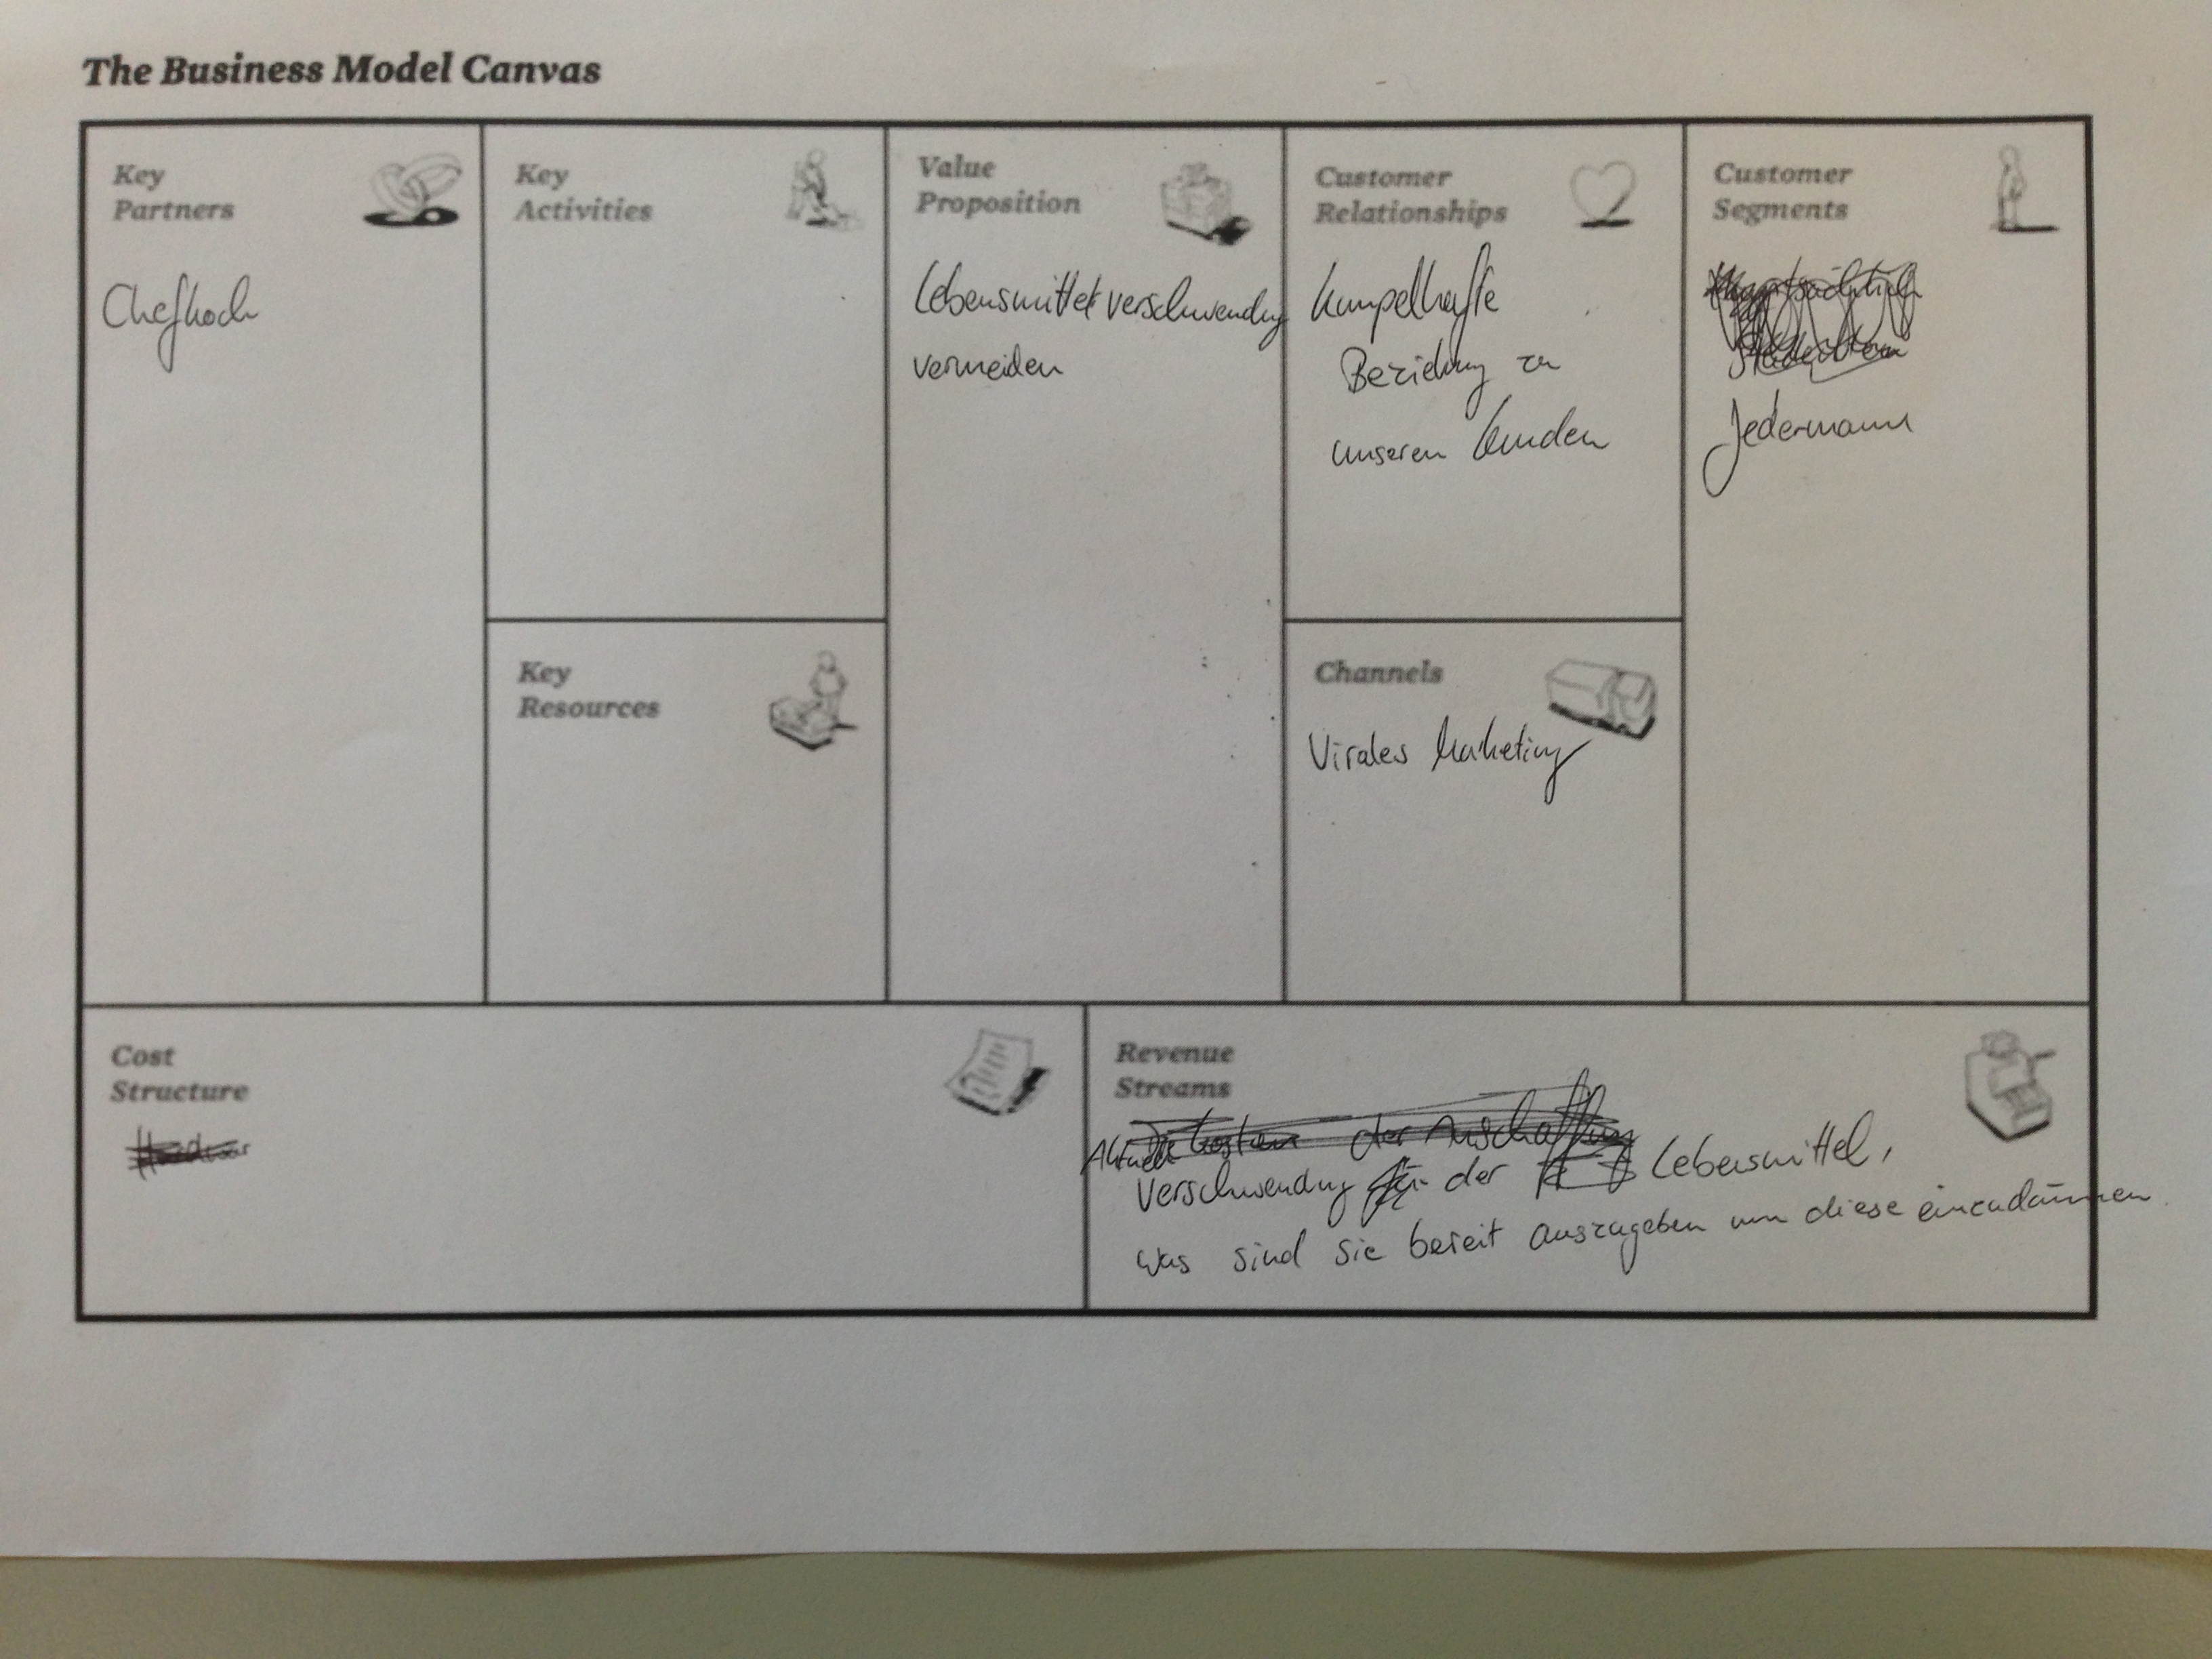 The Business Model Canvas
Key
Partners
Chefkoch
Key
Activities
Key
Resources
Value
Proposition
Lebensmittelverschwendung
vermeiden
Customer
Relationships
kumpelhafte
Beziehung zu
unseren Kunden
Channels
Virales Marketing
Customer
Segments
Jedermann
Cost
Structure
Revenue
Streams
Aktuelle Kosten der Anschaffung
Verschwendung der Lebensmittel,
was sind sie bereit auszugeben um diese einzudämmen